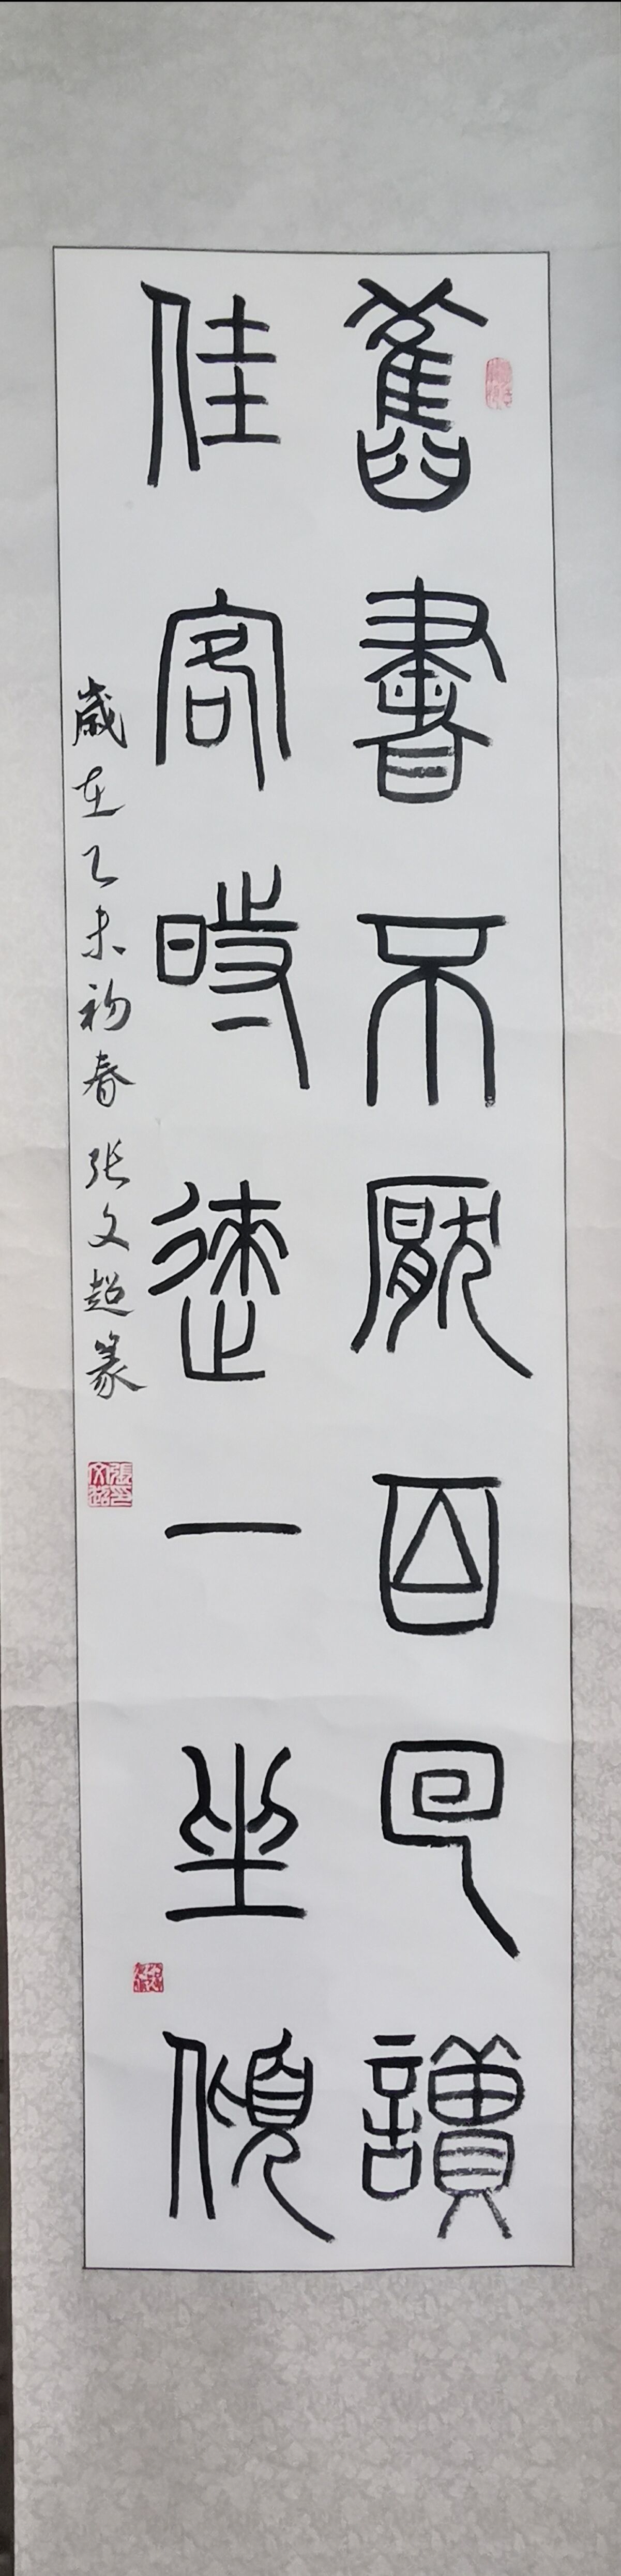 舊書不厭百回讀
佳客時逢一坐傾
歲在乙未初春 张文超篆